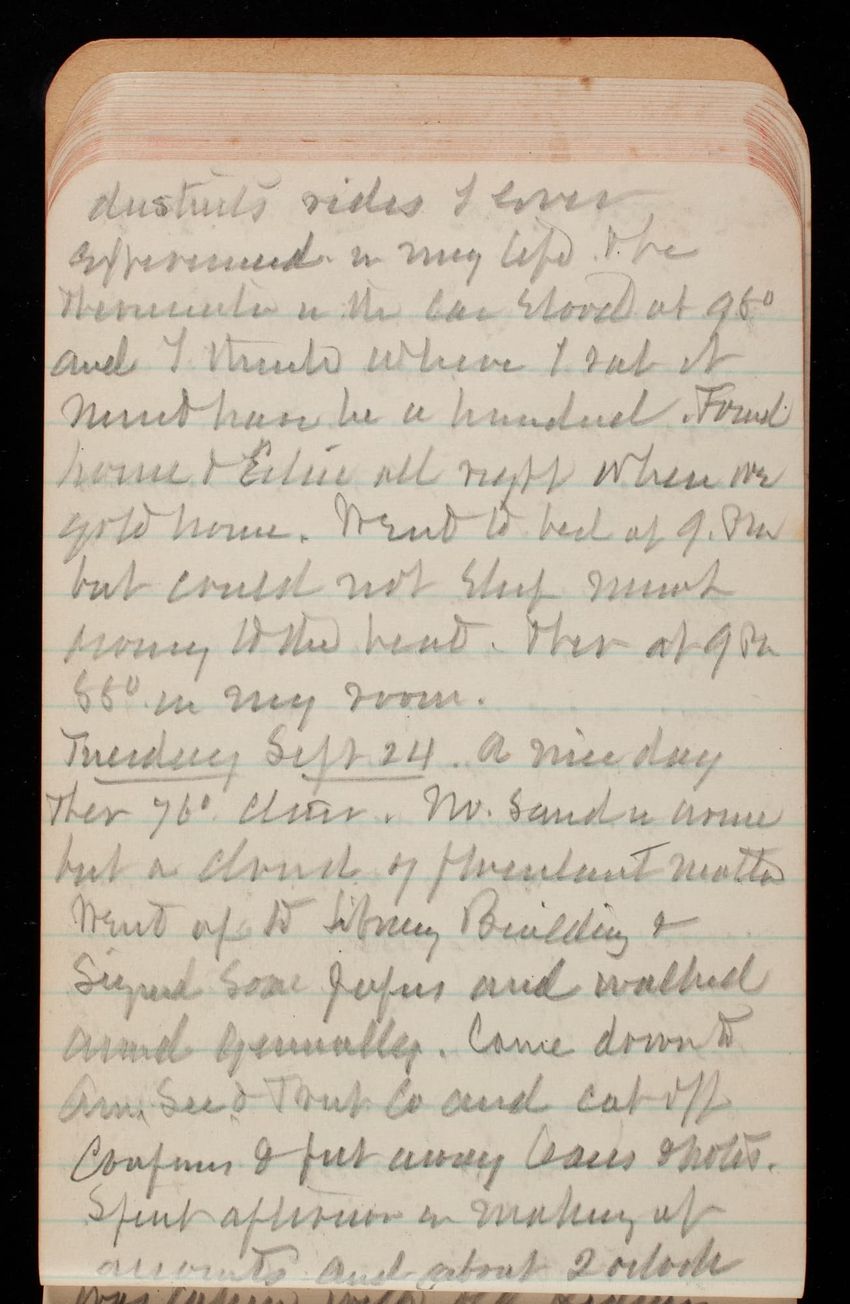 dustiest rides I ever
experienced in my life. The
Thermometer in the Car Stood at 98°
and I think where I sat it
must have be a hundred. Found
home & Edie all right when we
got home. Went to bed at 9. Pm
but could not Sleep much
owing to the heat. Ther at 9 Pm
88° in my room.
Tuesday Sept 24. A nice day
Ther 76° clear. No. Sand in
but a cloud of matter
Went up to Library Building &
Signed Some papers and walked
around generally. Came down to
Am. Sec & Trust Co and cut off
Coupons & put away Loans & notes.
Spent afternoon in making up
accounts and about 2 oclock
was taken with